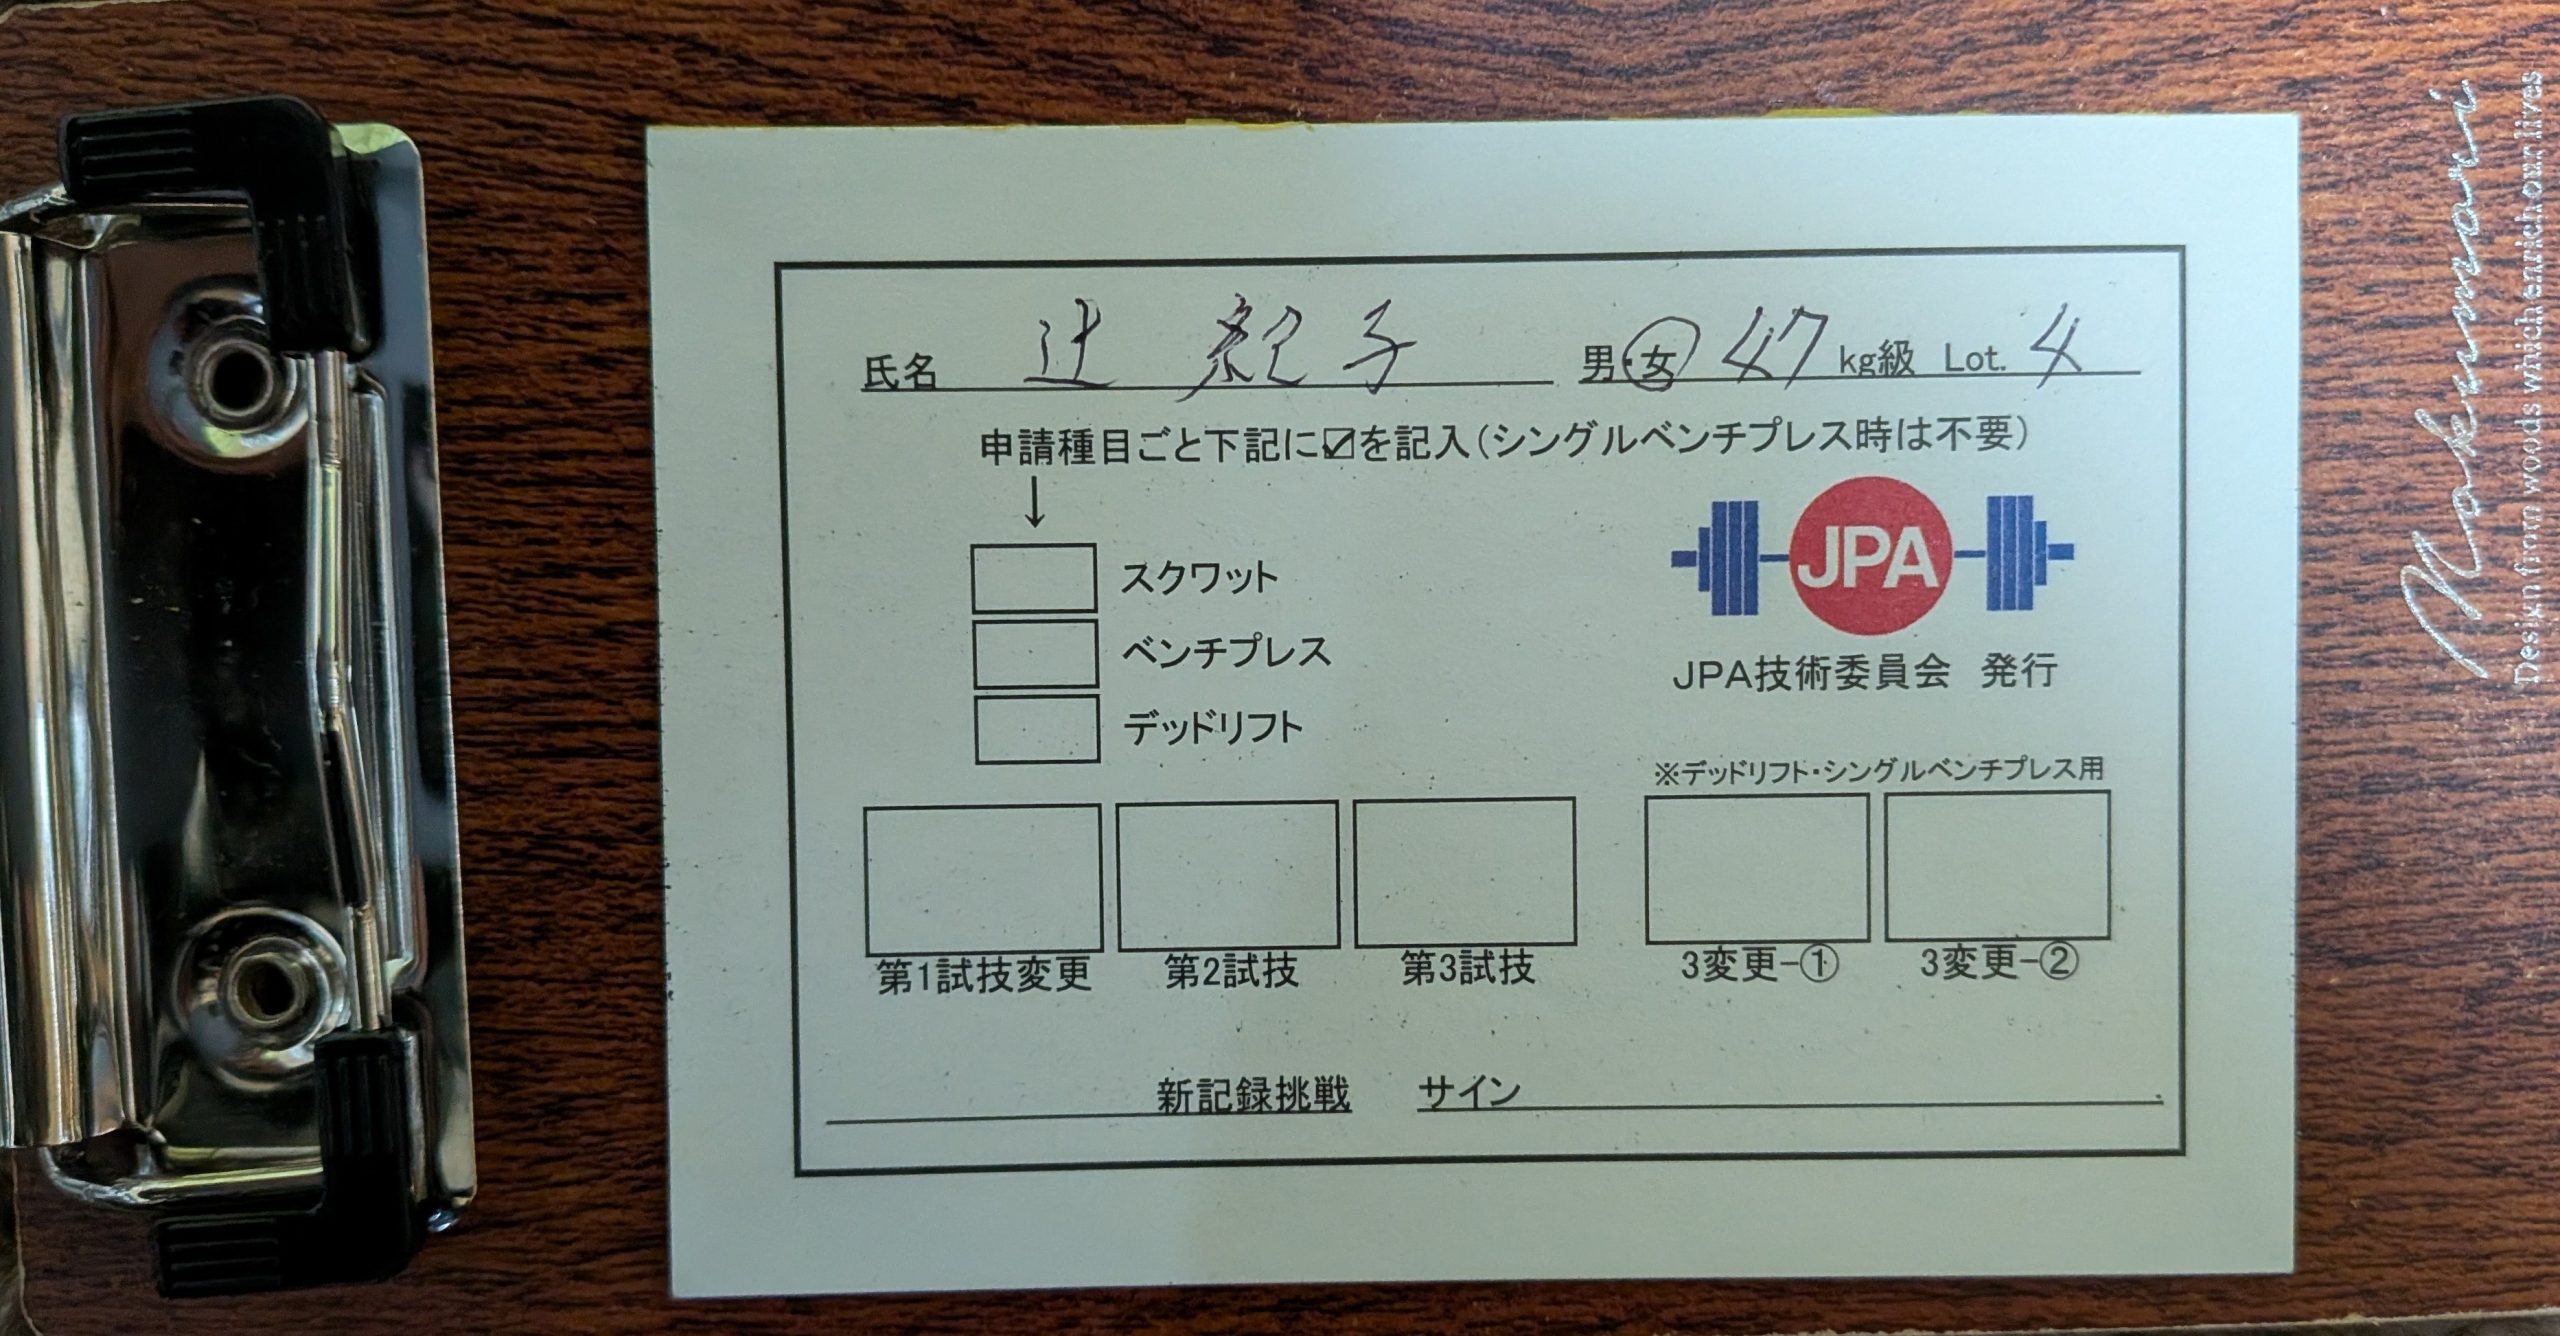 氏名 辻 紀子 男・女 47 kg級 Lot. 4
申請種目ごと下記に☑を記入(シングルベンチプレス時は不要)
↓
スクワット
ベンチプレス
デッドリフト
JPA
JPA技術委員会 発行
※デッドリフト・シングルベンチプレス用
第1試技変更 第2試技 第3試技 3変更-① 3変更-②
新記録挑戦 サイン
Nakumari
Design from woods which enrich our lives